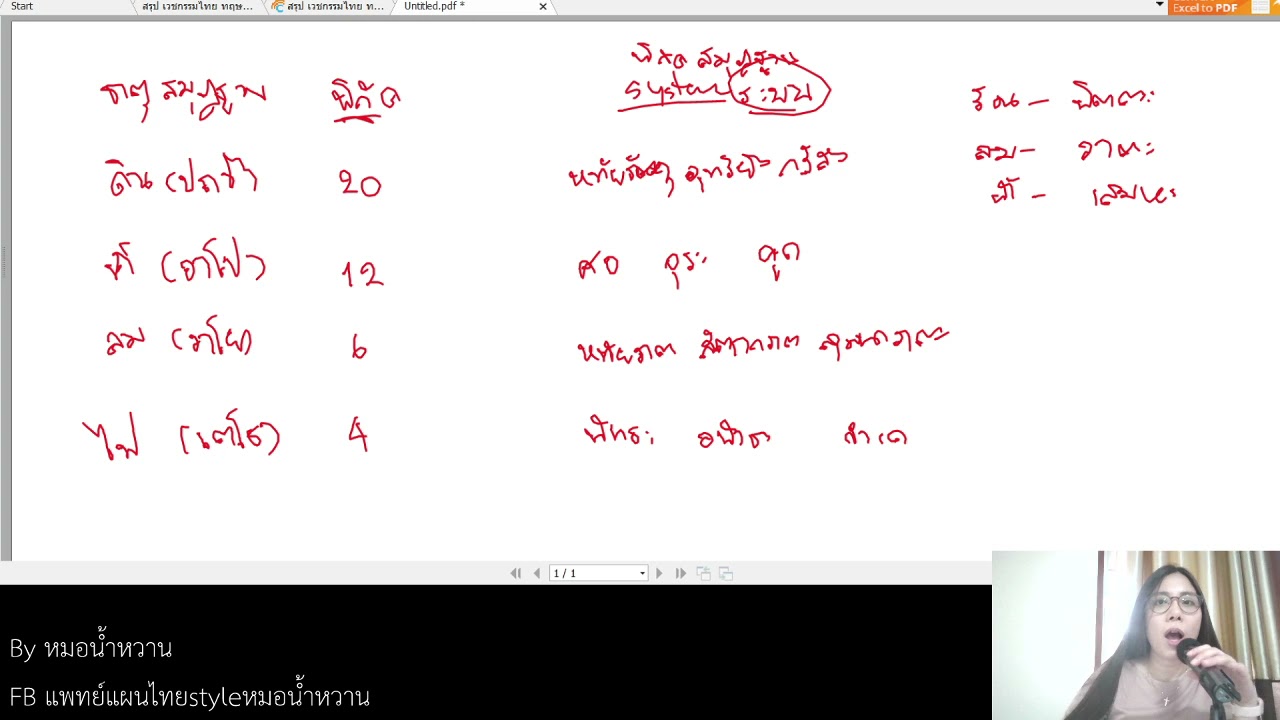 Start สรุป เวชกรรมไทย ทฤษ... สรุป เวชกรรมไทย ท... Untitled.pdf *
Excel to PDF
พิกัด สมุฏฐาน
ธาตุ สมุฏฐาน พิกัด system ระบบ
ร้อน - ปิตตะ
ลม - วาตะ
น้ำ - เสมหะ
ดิน (ปถวี) 20 หทัยวัตถุ อุทริยัง กรีสัง
น้ำ (อาโป) 12 ศอ อุระ คูถ
ลม (วาโย) 6 หทัยวาต สัตถกวาต สุมนาวาตะ
ไฟ (เตโช) 4 พัทธะ อพัทธะ กำเดา
1 / 1
By หมอน้ำหวาน
FB แพทย์แผนไทยstyleหมอน้ำหวาน